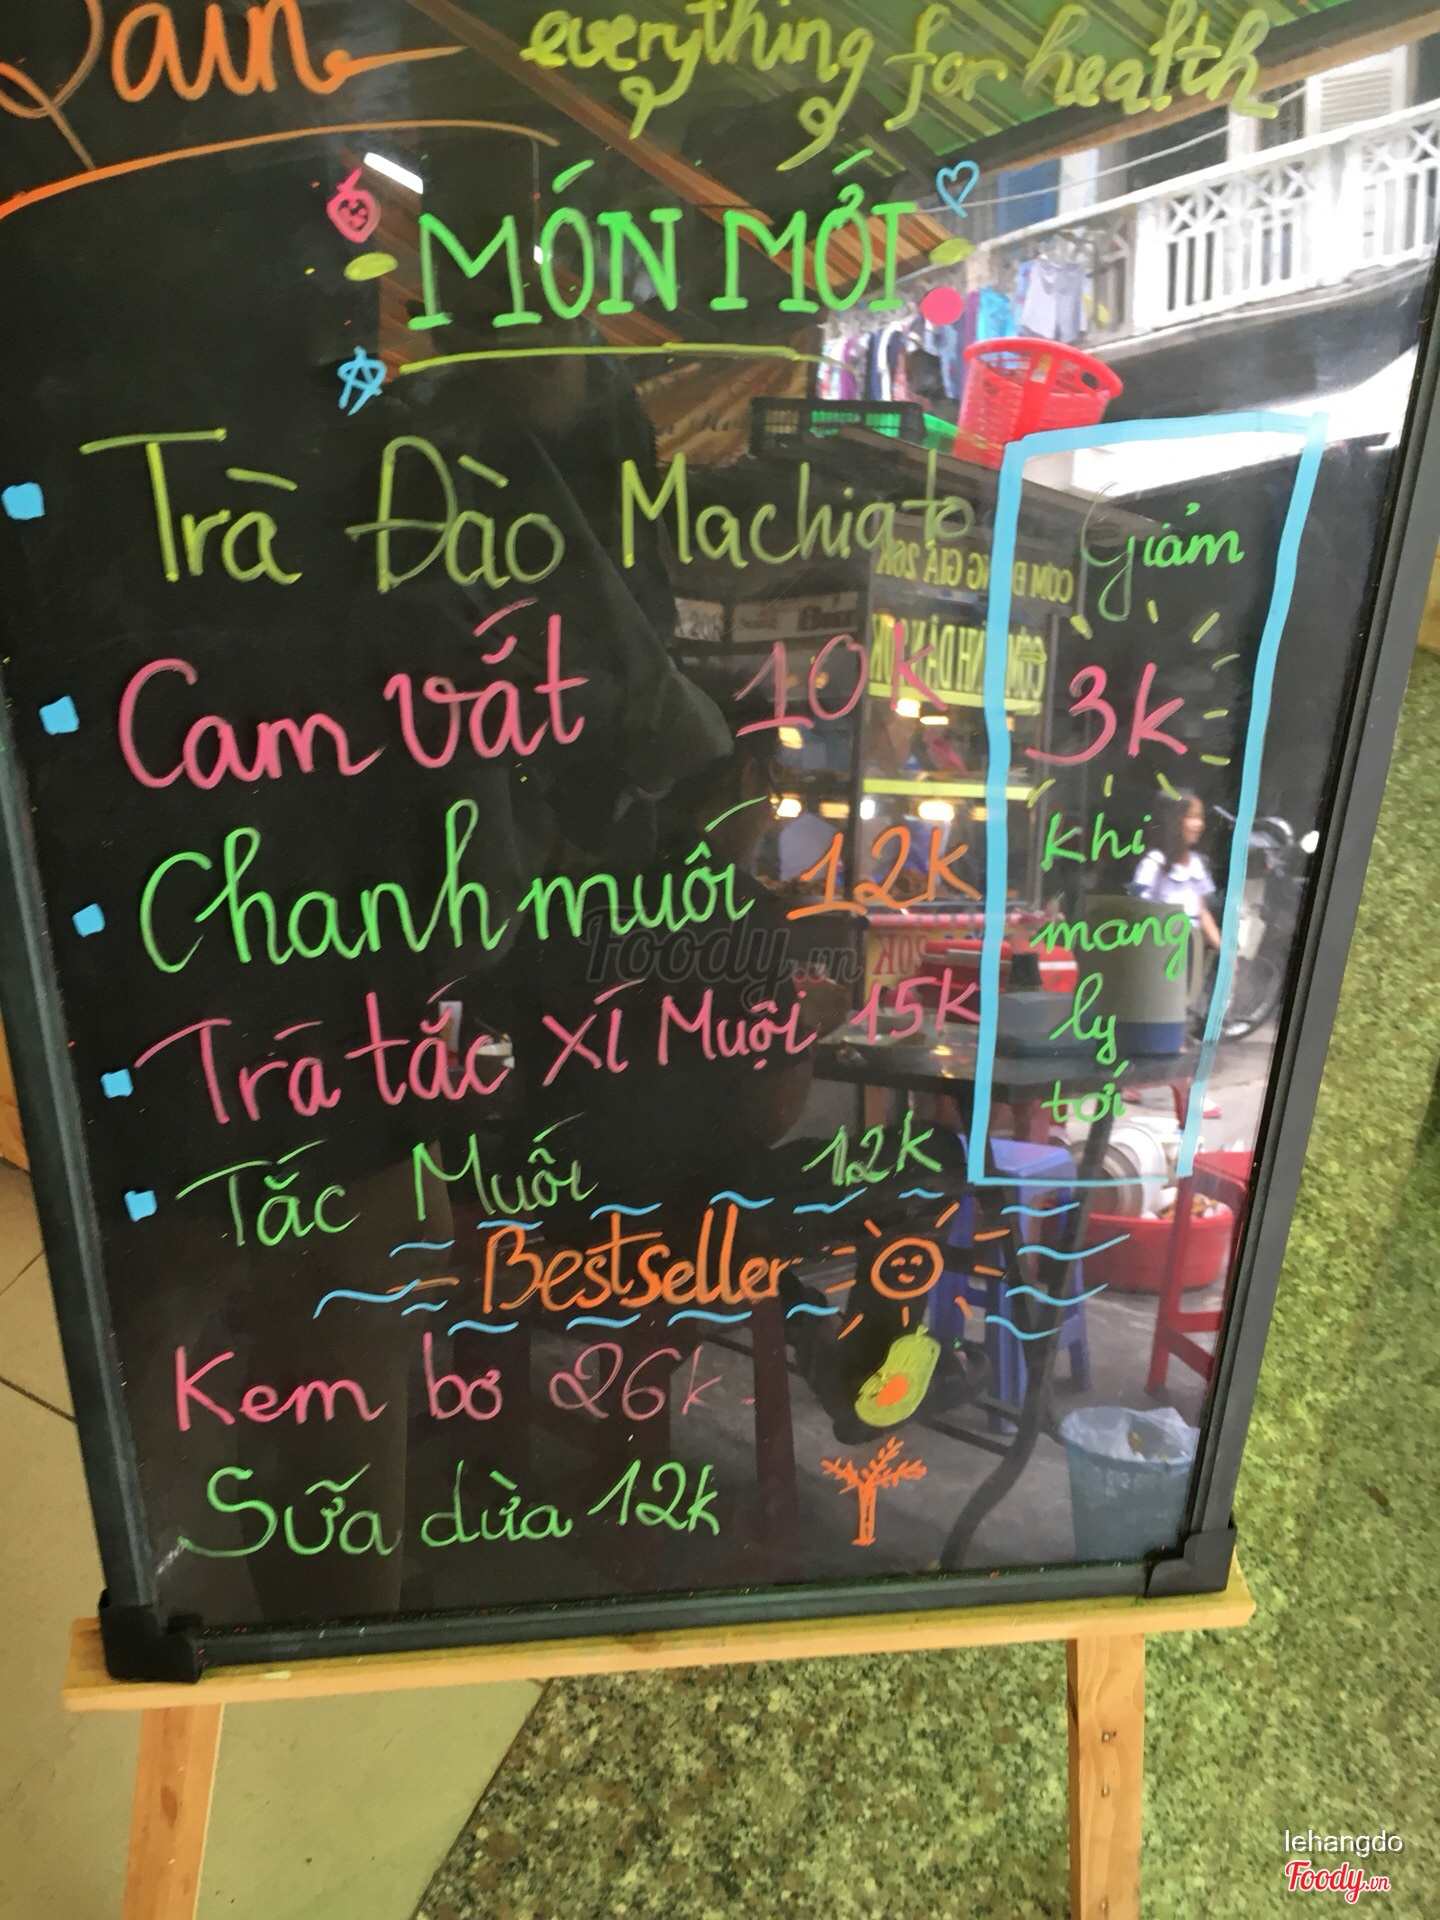 everything for health
MÓN MỚI
Trà Đào Machiato
Cam vắt 10K
Chanh muối 12K
Trà tắc xí Muội 15K
Tắc Muối 12K
Giảm
3K
khi
mang
ly
tới
Bestseller
Kem bơ 26k
Sữa dừa 12k
Foody.vn
lehangdo
Foody.vn